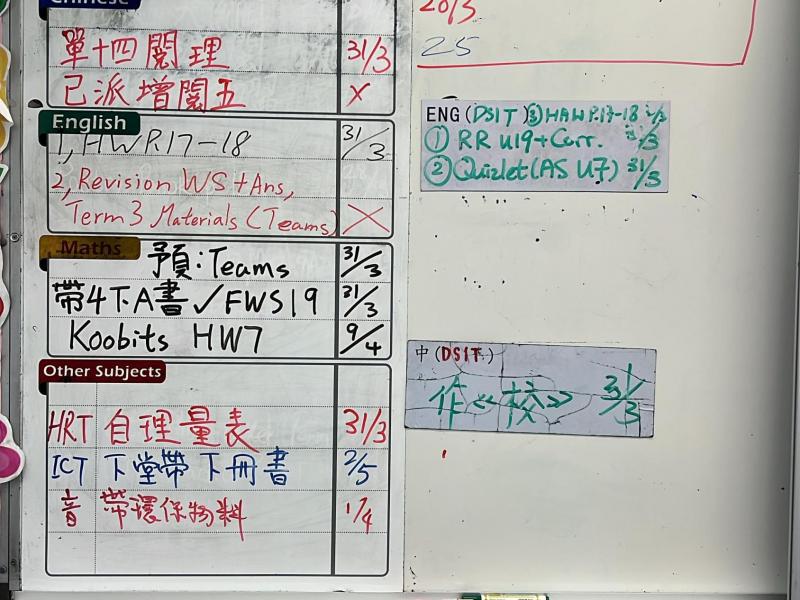 Chinese
單十四閱理 31/3
已派增閱五 X
English
1, HW P.17-18 31/3
2, Revision WS + Ans,
Term 3 Materials (Teams) X
Maths
預:Teams 31/3
帶4下A書✓FWS19 31/3
Koobits HW7 9/4
Other Subjects
HRT 自理量表 31/3
ICT 下堂帶下冊書 2/5
音 帶環保物料 1/4
20/3
25
ENG (DSIT) ③ HAW P.17-18
① RR U19+Curr.
② Quizlet (AS U7) 31/3
中(DSIT)
作《校》 31/3